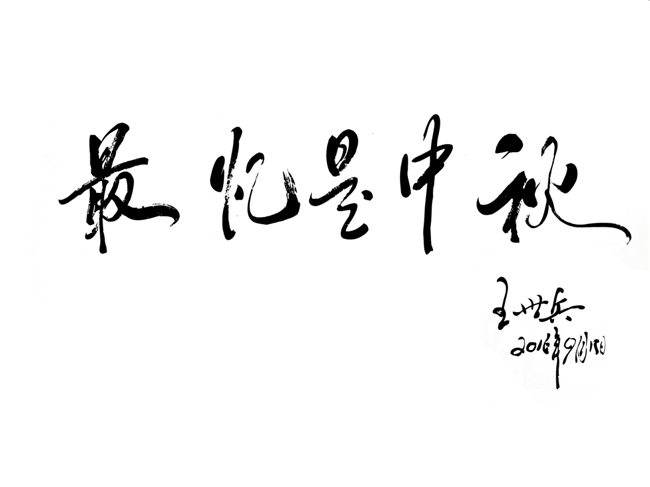 最忆是中秋
王世兵
2016年9月15日